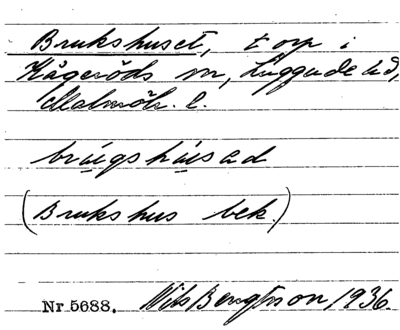 Brukshuset, torp i
Kågeröds sn, Luggude hd,
Malmöh. l.
brúgshúsəd
(Brukshus bek.)
Nr 5688. Nils Bengtsson 1936.